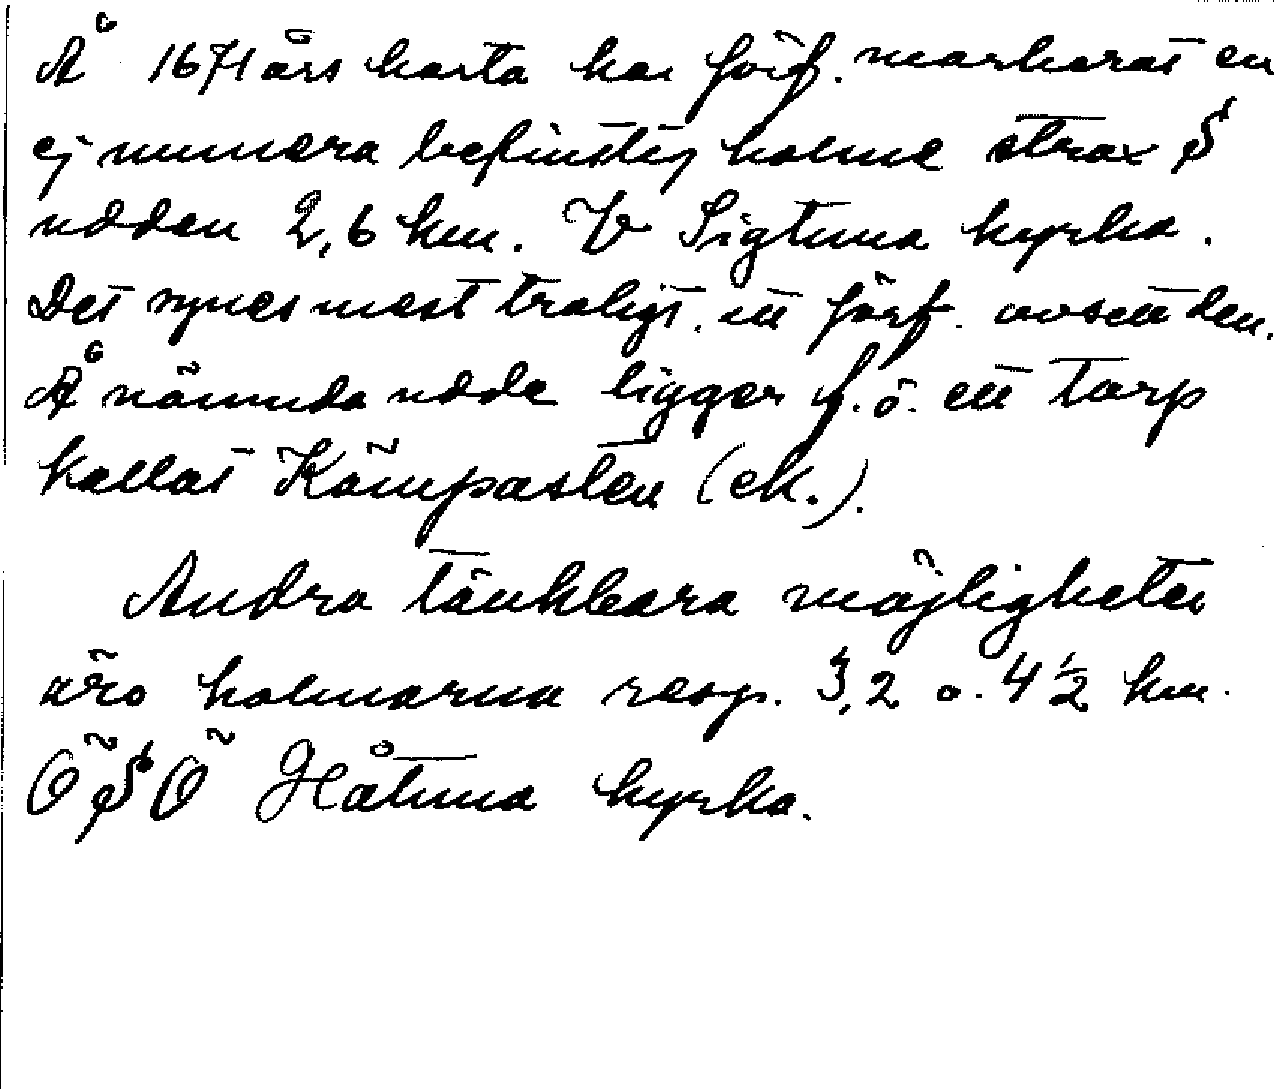 Å 1671 års karta har förf. markerat en
ej numera befintlig holme strax S
udden 2,6 km. V Sigtuna kyrka.
Det synes mest troligt, att förf. avsett den.
Å nämnda udde ligger f. ö. ett torp
kallat Kämpasten (ek.).
Andra tänkbara möjligheter
äro holmarna resp. 3,2 o. 4½ km.
ÖSÖ Håtuna kyrka.